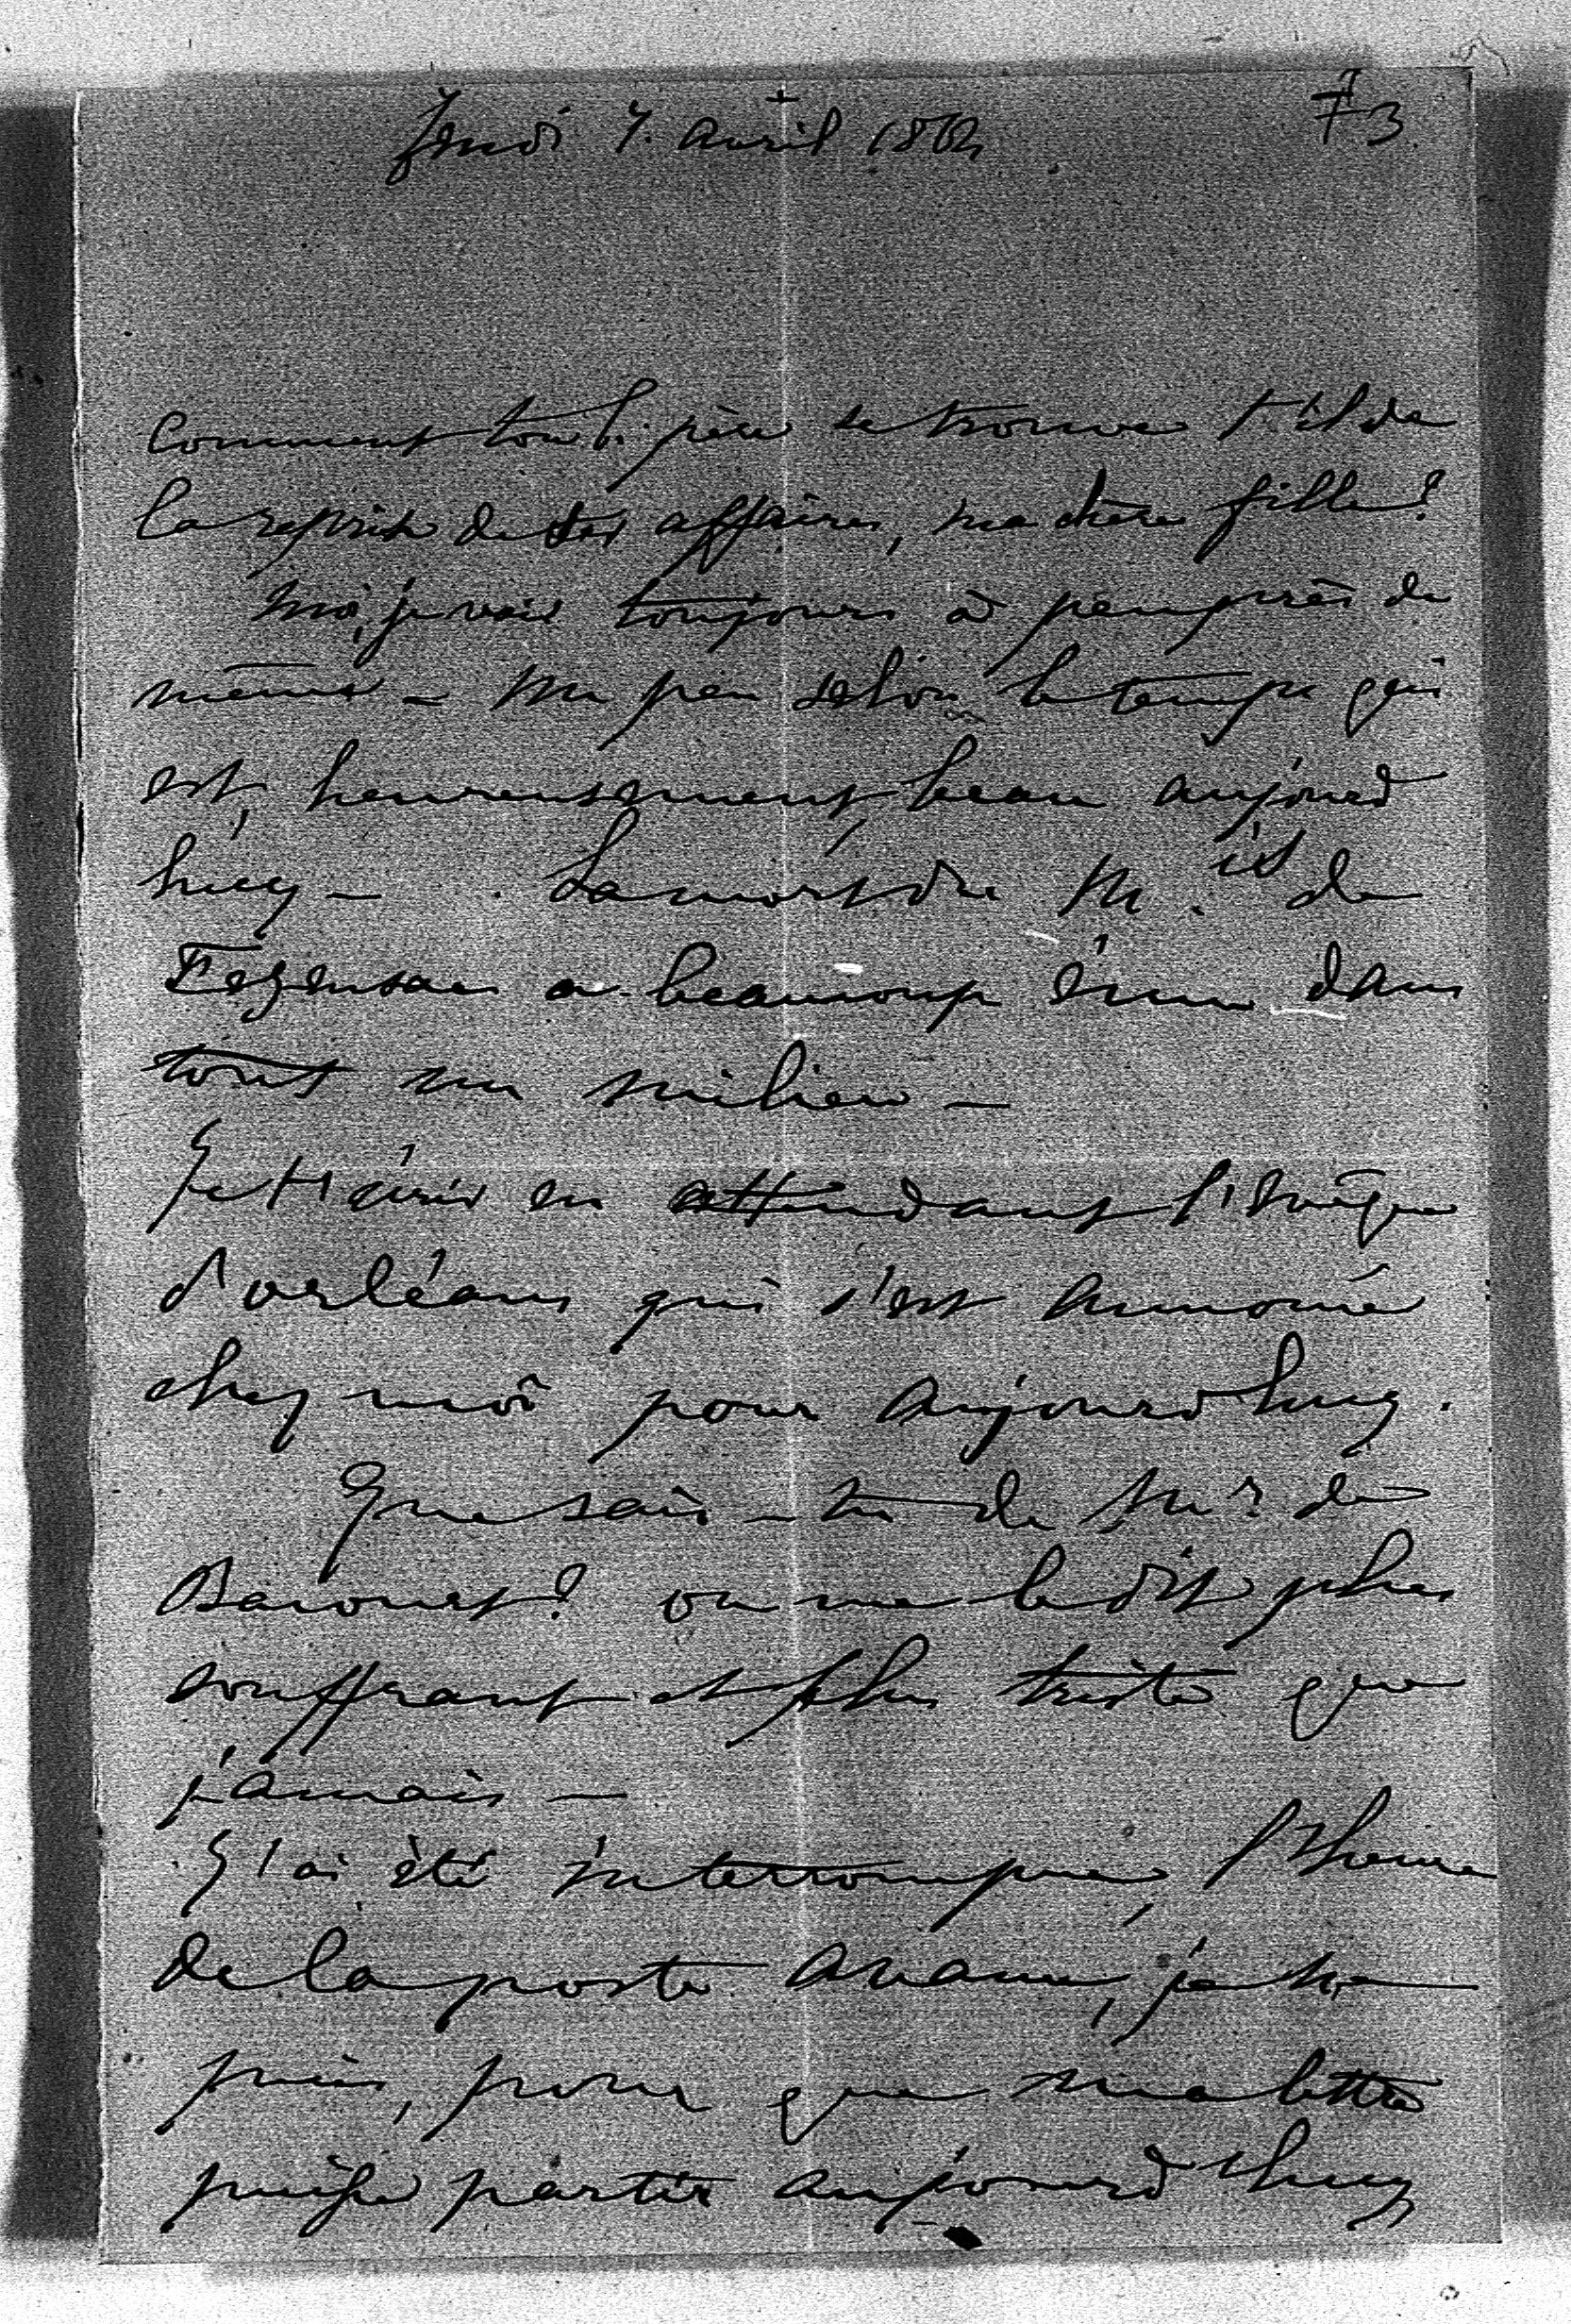 +
73
Jeudi 7. avril 1862
Comment ton b. père se trouve t'il de
la reprise de ses affaires, ma chère fille?
Moi, je vais toujours à peu près de
même – un peu selon le temps qui
est, heureusement, beau aujourd
huy – La mort du M.is de
Fezensac a beaucoup ému dans
tout un milieu –
Je t'écris en attendant l'Evêque
d'orléans qui s'est annoncé
chez moi pour aujourd'huy.
Que sais-tu de Mr. de
? on me le dit plus
souffrant et plus triste que
jamais –
J'ai été interrompue, l'heure
de la poste avance, je ne
puis, pour que ma lettre
puisse partir aujourd'huy